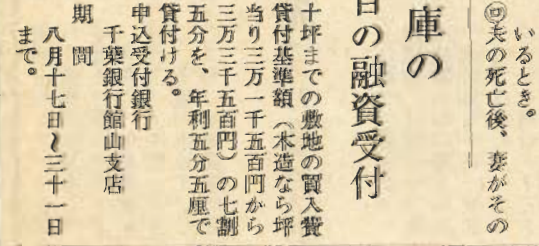 いるとき。
㋺夫の死亡後、妻がその
庫の
の融資受付
十坪までの敷地の買入費
貸付基準額(木造なら坪
当り三万一千五百円から
三万三千五百円)の七割
五分を、年利五分五厘で
貸付ける。
申込受付銀行
千葉銀行館山支店
期間
八月十七日〜三十一日
まで。